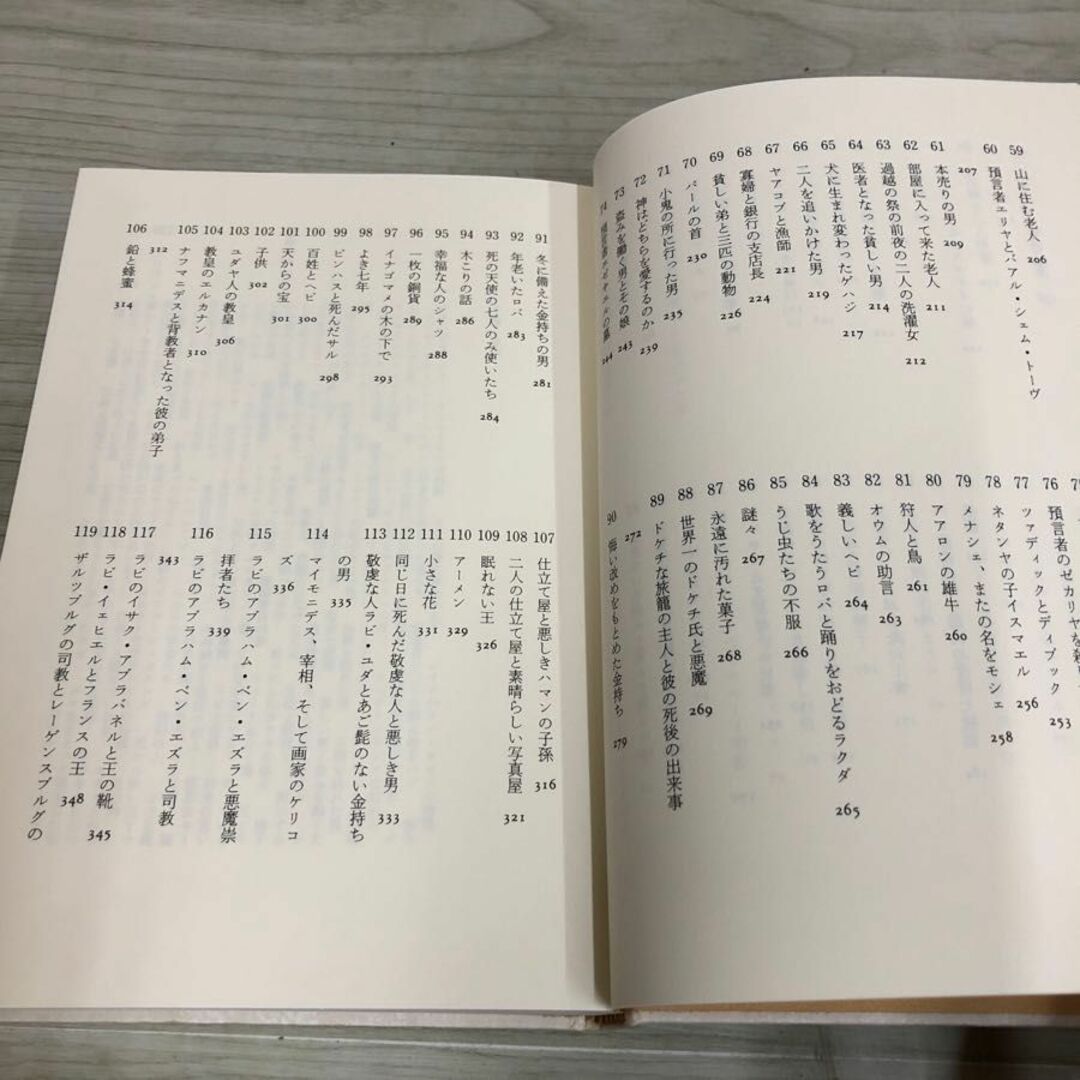 59 山に住む老人 206
60 預言者エリヤとバアル・シェム・トーヴ
207
61 本売りの男 209
62 部屋に入って来た老人 211
63 過越の祭の前夜の二人の洗濯女 212
64 医者となった貧しい男 214
65 犬に生まれ変わったゲハジ 217
66 二人を追いかけた男 219
67 ヤアコブと漁師 221
68 寡婦と銀行の支店長 224
69 貧しい弟と三匹の動物 226
70 バールの首 230
71 小鬼の所に行った男 235
72 神はどちらを愛するのか 239
73 盗みを働く男とその娘 243
74 244
76 預言者のゼカリヤを
77 ツァディックとディブック 253
78 ネタンヤの子イスマエル 256
79 メナシェ、またの名をモシェ 258
80 アアロンの雄牛 260
81 狩人と鳥 261
82 オウムの助言 263
83 義しいヘビ 264
84 歌をうたうロバと踊りをおどるラクダ 265
85 うじ虫たちの不服 266
86 謎々 267
87 永遠に汚れた菓子 268
88 世界一のドケチ氏と悪魔 269
89 ドケチな旅籠の主人と彼の死後の出来事
272
90 悔い改めをもとめた金持ち 279
91 冬に備えた金持ちの男 281
92 年老いたロバ 283
93 死の天使の七人のみ使いたち 284
94 木こりの話 286
95 幸福な人のシャツ 288
96 一枚の銅貨 289
97 イナゴマメの木の下で 293
98 よき七年 295
99 ピンハスと死んだサル 298
100 百姓とヘビ 300
101 天からの宝 301
102 子供 302
103 ユダヤ人の教皇 306
104 教皇のエルカナン 310
105 ナフマニデスと背教者となった彼の弟子
312
106 鉛と蜂蜜 314
107 仕立て屋と悪しきハマンの子孫 316
108 二人の仕立て屋と素晴らしい写真屋 321
109 眠れない王 326
110 アーメン 329
111 小さな花 331
112 同じ日に死んだ敬虔な人と悪しき男 333
113 敬虔な人ラビ・ユダとあご髭のない金持ち
の男 335
114 マイモニデス、宰相、そして画家のケリコ
ズ 336
115 ラビのアブラハム・ベン・エズラと悪魔崇
拝者たち 339
116 ラビのアブラハム・ベン・エズラと司教
343
117 ラビのイサク・アブラバネルと王の靴 345
118 ラビ・イェヒエルとフランスの王 348
119 ザルツブルグの司教とレーゲンスブルグの